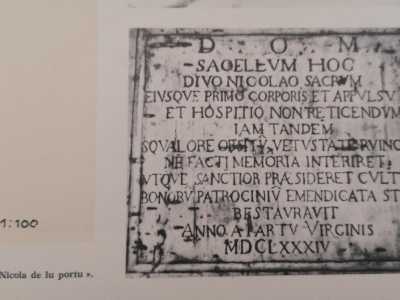 D O M
SACELLUM HOC
DIVO NICOLAO SACRVM
EIUSQVE PRIMO CORPORIS ET APPULSU
ET HOSPITIO NON RETICENDVM
IAM TANDEM
SQVALORE OBSITV VETVSTATE RVINO
NE FACTI MEMORIA INTERIRET
VTQVE SANCTIOR PRÆSIDERET CVLT
BONORV̄ PATROCINIV̄ EMENDICATA ST
RESTAURAVIT
ANNO A PARTV VIRGINIS
MDCLXXXIV
1:100
Nicola de lu portu ».